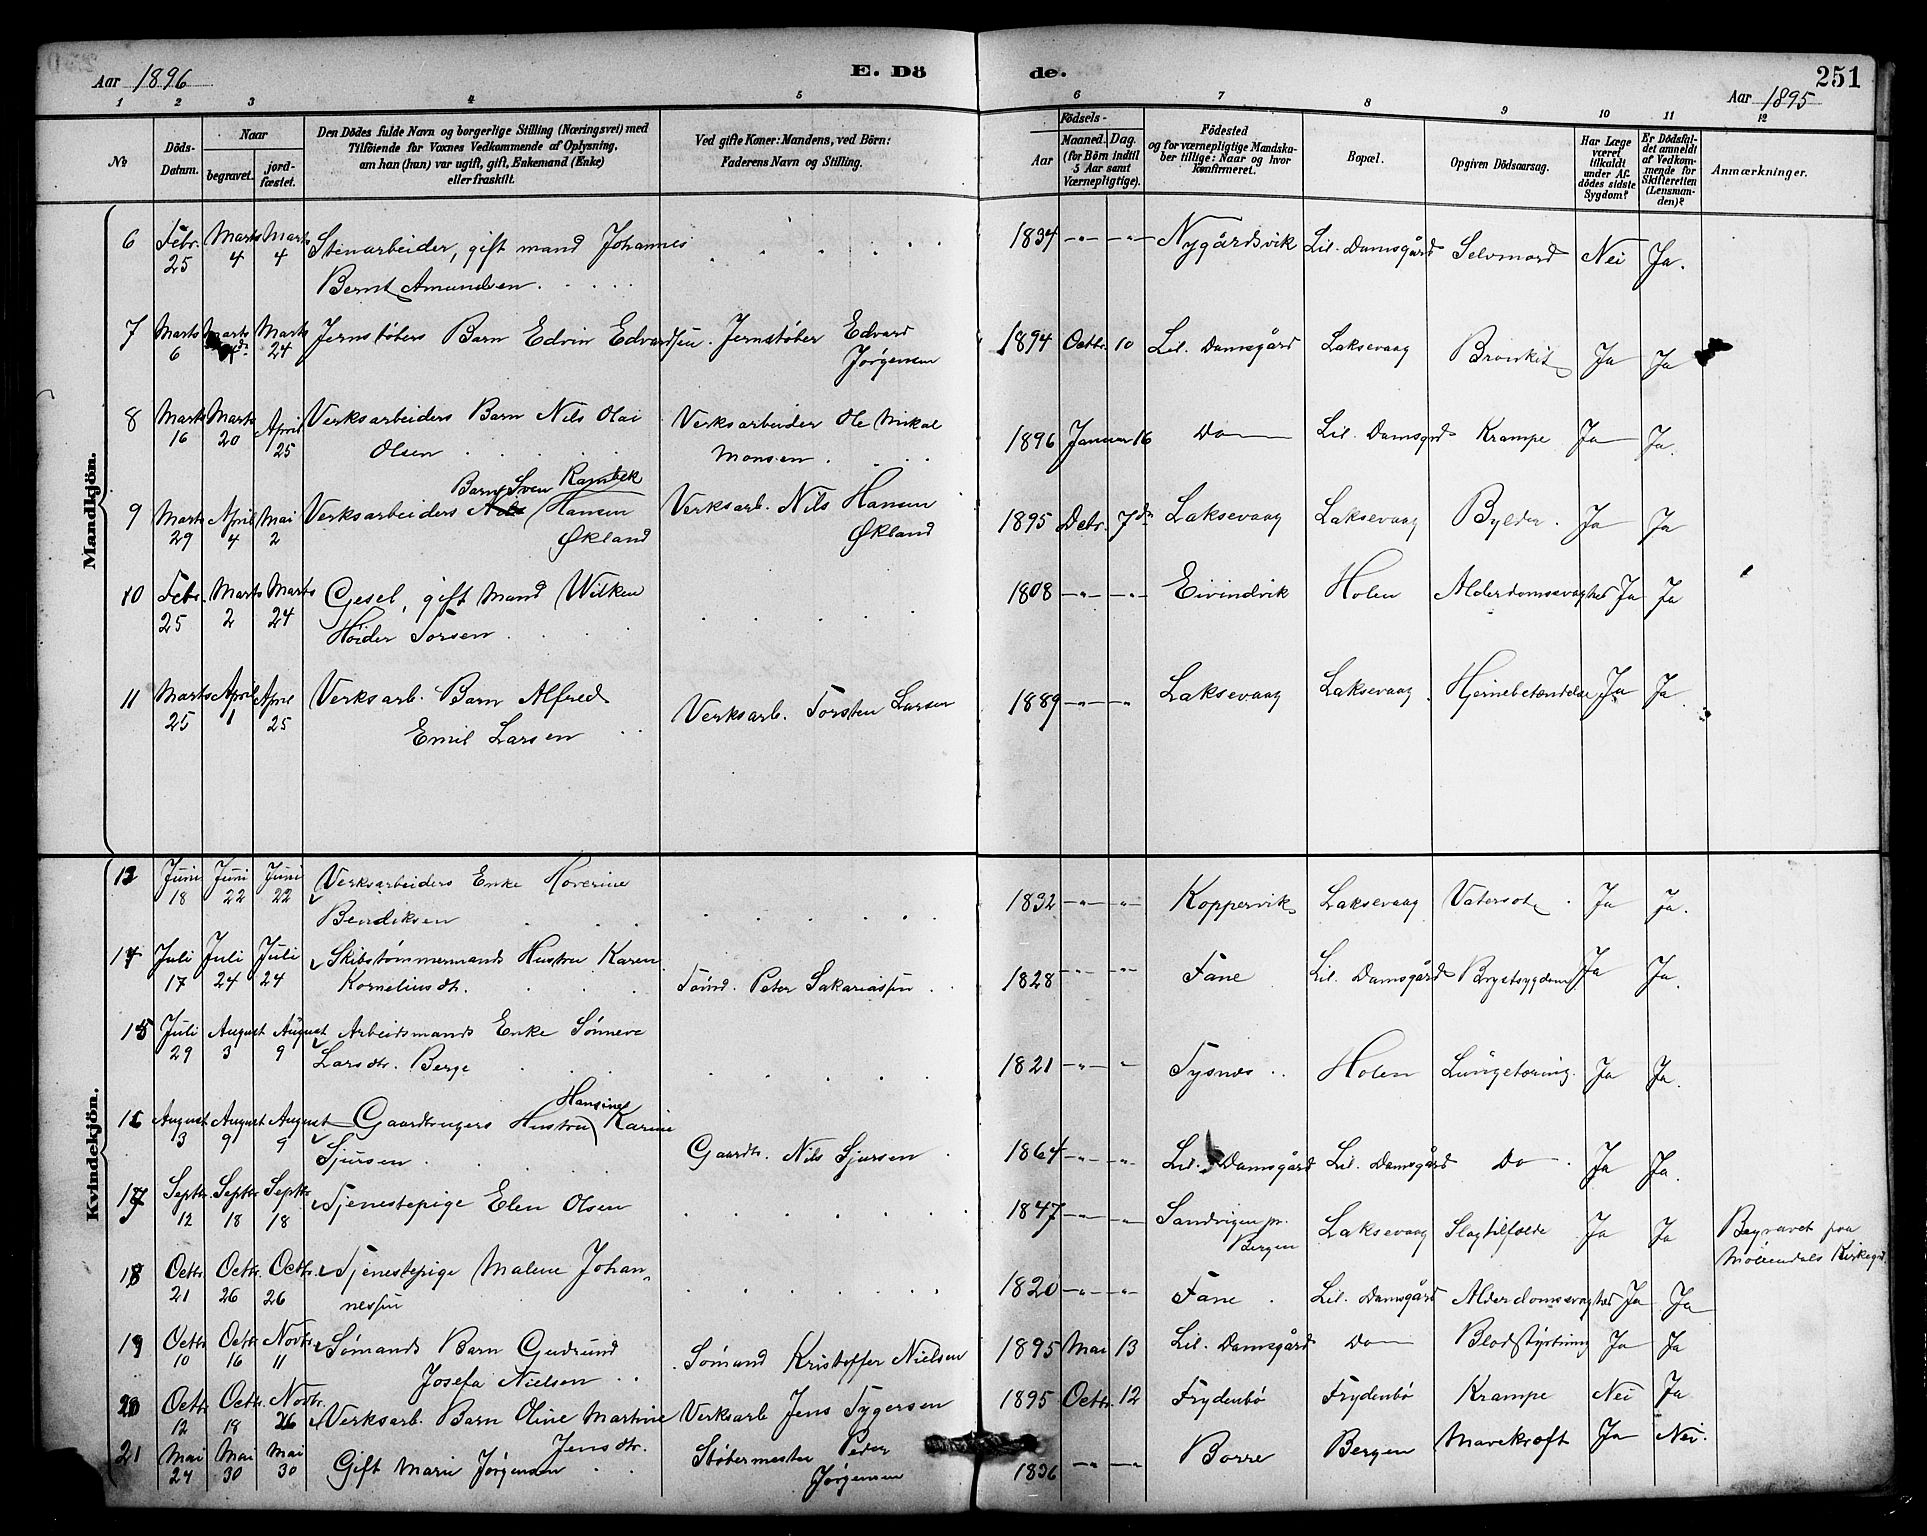 Aar 1896 E. Dö de. 251
Aar 1895
1 2 3 4 5 6 7 8 9 10 11 12
No Döds-Datum. Naar begravet. jordfæstet. Den Dödes fulde Navn og borgerlige Stilling (Næringsvei) med Tilföiende for Voxnes Vedkommende af Oplysning, om han (hun) var ugift, gift, Enkemand (Enke) eller fraskilt. Ved gifte Koner: Mandens, ved Börn: Faderens Navn og Stilling. Födsels- Aar Maaned. Dag. (for Börn indtil 5 Aar samt Værnepligtige). Födested og for værnepligtige Mandskaber tillige: Naar og hvor konfirmeret. Bopæl. Opgiven Dödsaarsag. Har Læge været tilkaldt under Afdödes sidste Sygdom? Er Dödsfaldet anmeldt af Vedkommende for Skifteretten (Lensmanden)? Anmærkninger.
Mandkjön.
6 Febr. 25 Marts 4 Marts 4 Stenarbeider, gift mand Johannes 1834 -"- -"- Nygårdsvik Lil. Damsgård Selvmord Nei Ja.
Bernt Amundsen
7 Marts 6 Marts Marts 24 Jernstøbers Barn Edvin Edvardsen. Jernstøber Edvard 1894 Octbr. 10 Lil. Damsgård Laksevaag Bronkit Ja Ja
Jørgensen
8 Marts 16 Marts 20 April 25 Verksarbeiders Barn Nils Olai Verksarbeider Ole Mikal 1896 Januar 16 Do Lil. Damsgrd Krampe Ja Ja.
Olsen Monsen
Barn Sven Rambek
9 Marts 29 April 4 Mai 2 Verksarbeiders Nils Hansen Verksarb. Nils Hansen 1895 Debr. 7de Laksevaag Laksevaag Bylder. Ja Ja
Økland Økland
10 Febr. 25 Marts 2 Marts 24 Gesel, gift Mand Wilken 1808 -"- -"- Eivindvik Holen Alderdomssvaghed Ja Ja
Høider Torsen
11 Marts 25 April 1 April 25 Verksarb. Barn Alfred Verksarb. Torsten Larsen 1889 -"- -"- Laksevaag Laksevaag Hjernebetændelse Ja Ja
Emil Larsen
Kvindekjön.
13 Juni 18 Juni 22 Juni 22 Verksarbeiders Enke Noverine 1832 -"- -"- Koppervik Laksevaag Vatersot Ja Ja.
Bendiksen
14 Juli 17 Juli 24 Juli 24 Skibstømmermands Hustru Karen Tømd. Peter Sakariassen 1828 -"- -"- Fane Lil. Damsgård Brystsygdom Ja Ja.
Korneliusdt.
15 Juli 29 August 3 August 9 Arbeidsmands Enke Sønneve 1821 -"- " Tysnes Holen Lungetæring. Ja Ja.
Larsdtr. Berge
Hansine
16 August 3 August 9 August 9 Gaardbrugers Hustru Karine Gaardb. Nils Sjursen 1864 -"- -"- Lil. Damsgård Lil. Damsgård Do Ja Ja.
Sjursen
17 Septbr. 12 Septbr. 18 Septbr. 18 Tjenestepige Elen Olsen 1847 -"- -"- Sandvigen pr. Bergen Laksevaag Slagtilfælde Ja Ja Begravet paa Møllendals Kirkegrd
18 Octbr. 21 Octbr. 26 Octbr. 26 Tjenestepige Malene Johan- 1820 -"- -"- Fane Lil. Damsgård Alderdomssvaghed Ja Ja
nessen
19 Octbr. 10 Octbr. 16 Novbr. 11 Sømands Barn Gudrund Sømand Kristoffer Nielsen 1895 Mai 13 Lil. Damsgård Do Blodstyrtning Ja Ja
Josefa Nielsen
20 Octbr. 12 Octbr. 18 Novbr. 26 Verksarb. Barn Oline Martine Verksarb Jens Tygersen 1895 Octbr. 12 Frydenbø Frydenbø Krampe Nei Ja
Jensdtr.
21 Mai 24 Mai 30 Mai 30 Gift Marie Jørgensen Støbermester Peder Jørgensen 1836 -"- -"- Borre Bergen Mavekræft Ja Nei.